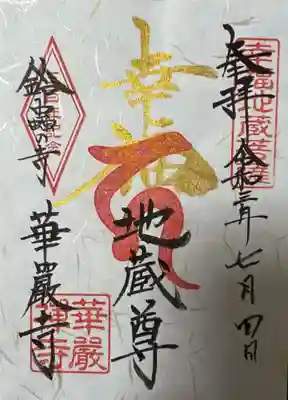 奉拝
令和三年七月四日
幸福地蔵菩薩
幸福
地蔵尊
鈴虫寺
華嚴寺
華嚴禅寺